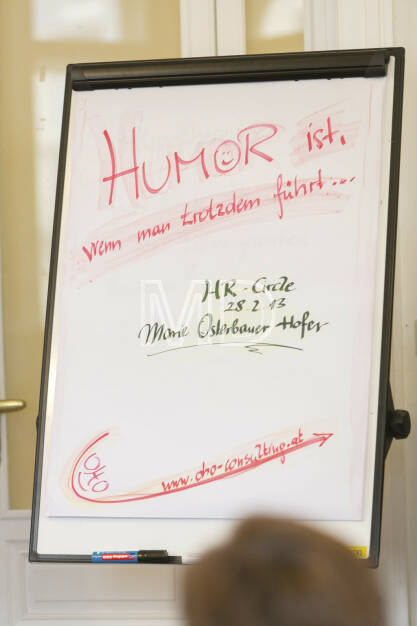 HUMOR ist,
wenn man trotzdem führt...
HR-Circle
28.2.13
Marie Osterbauer-Hofer
MD
OHO
www.oho-consulting.at